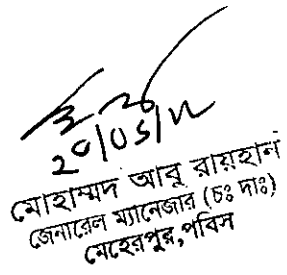 মোহাম্মদ আবু রায়হান
জেনারেল ম্যানেজার (চঃ দাঃ)
মেহেরপুর,পবিস